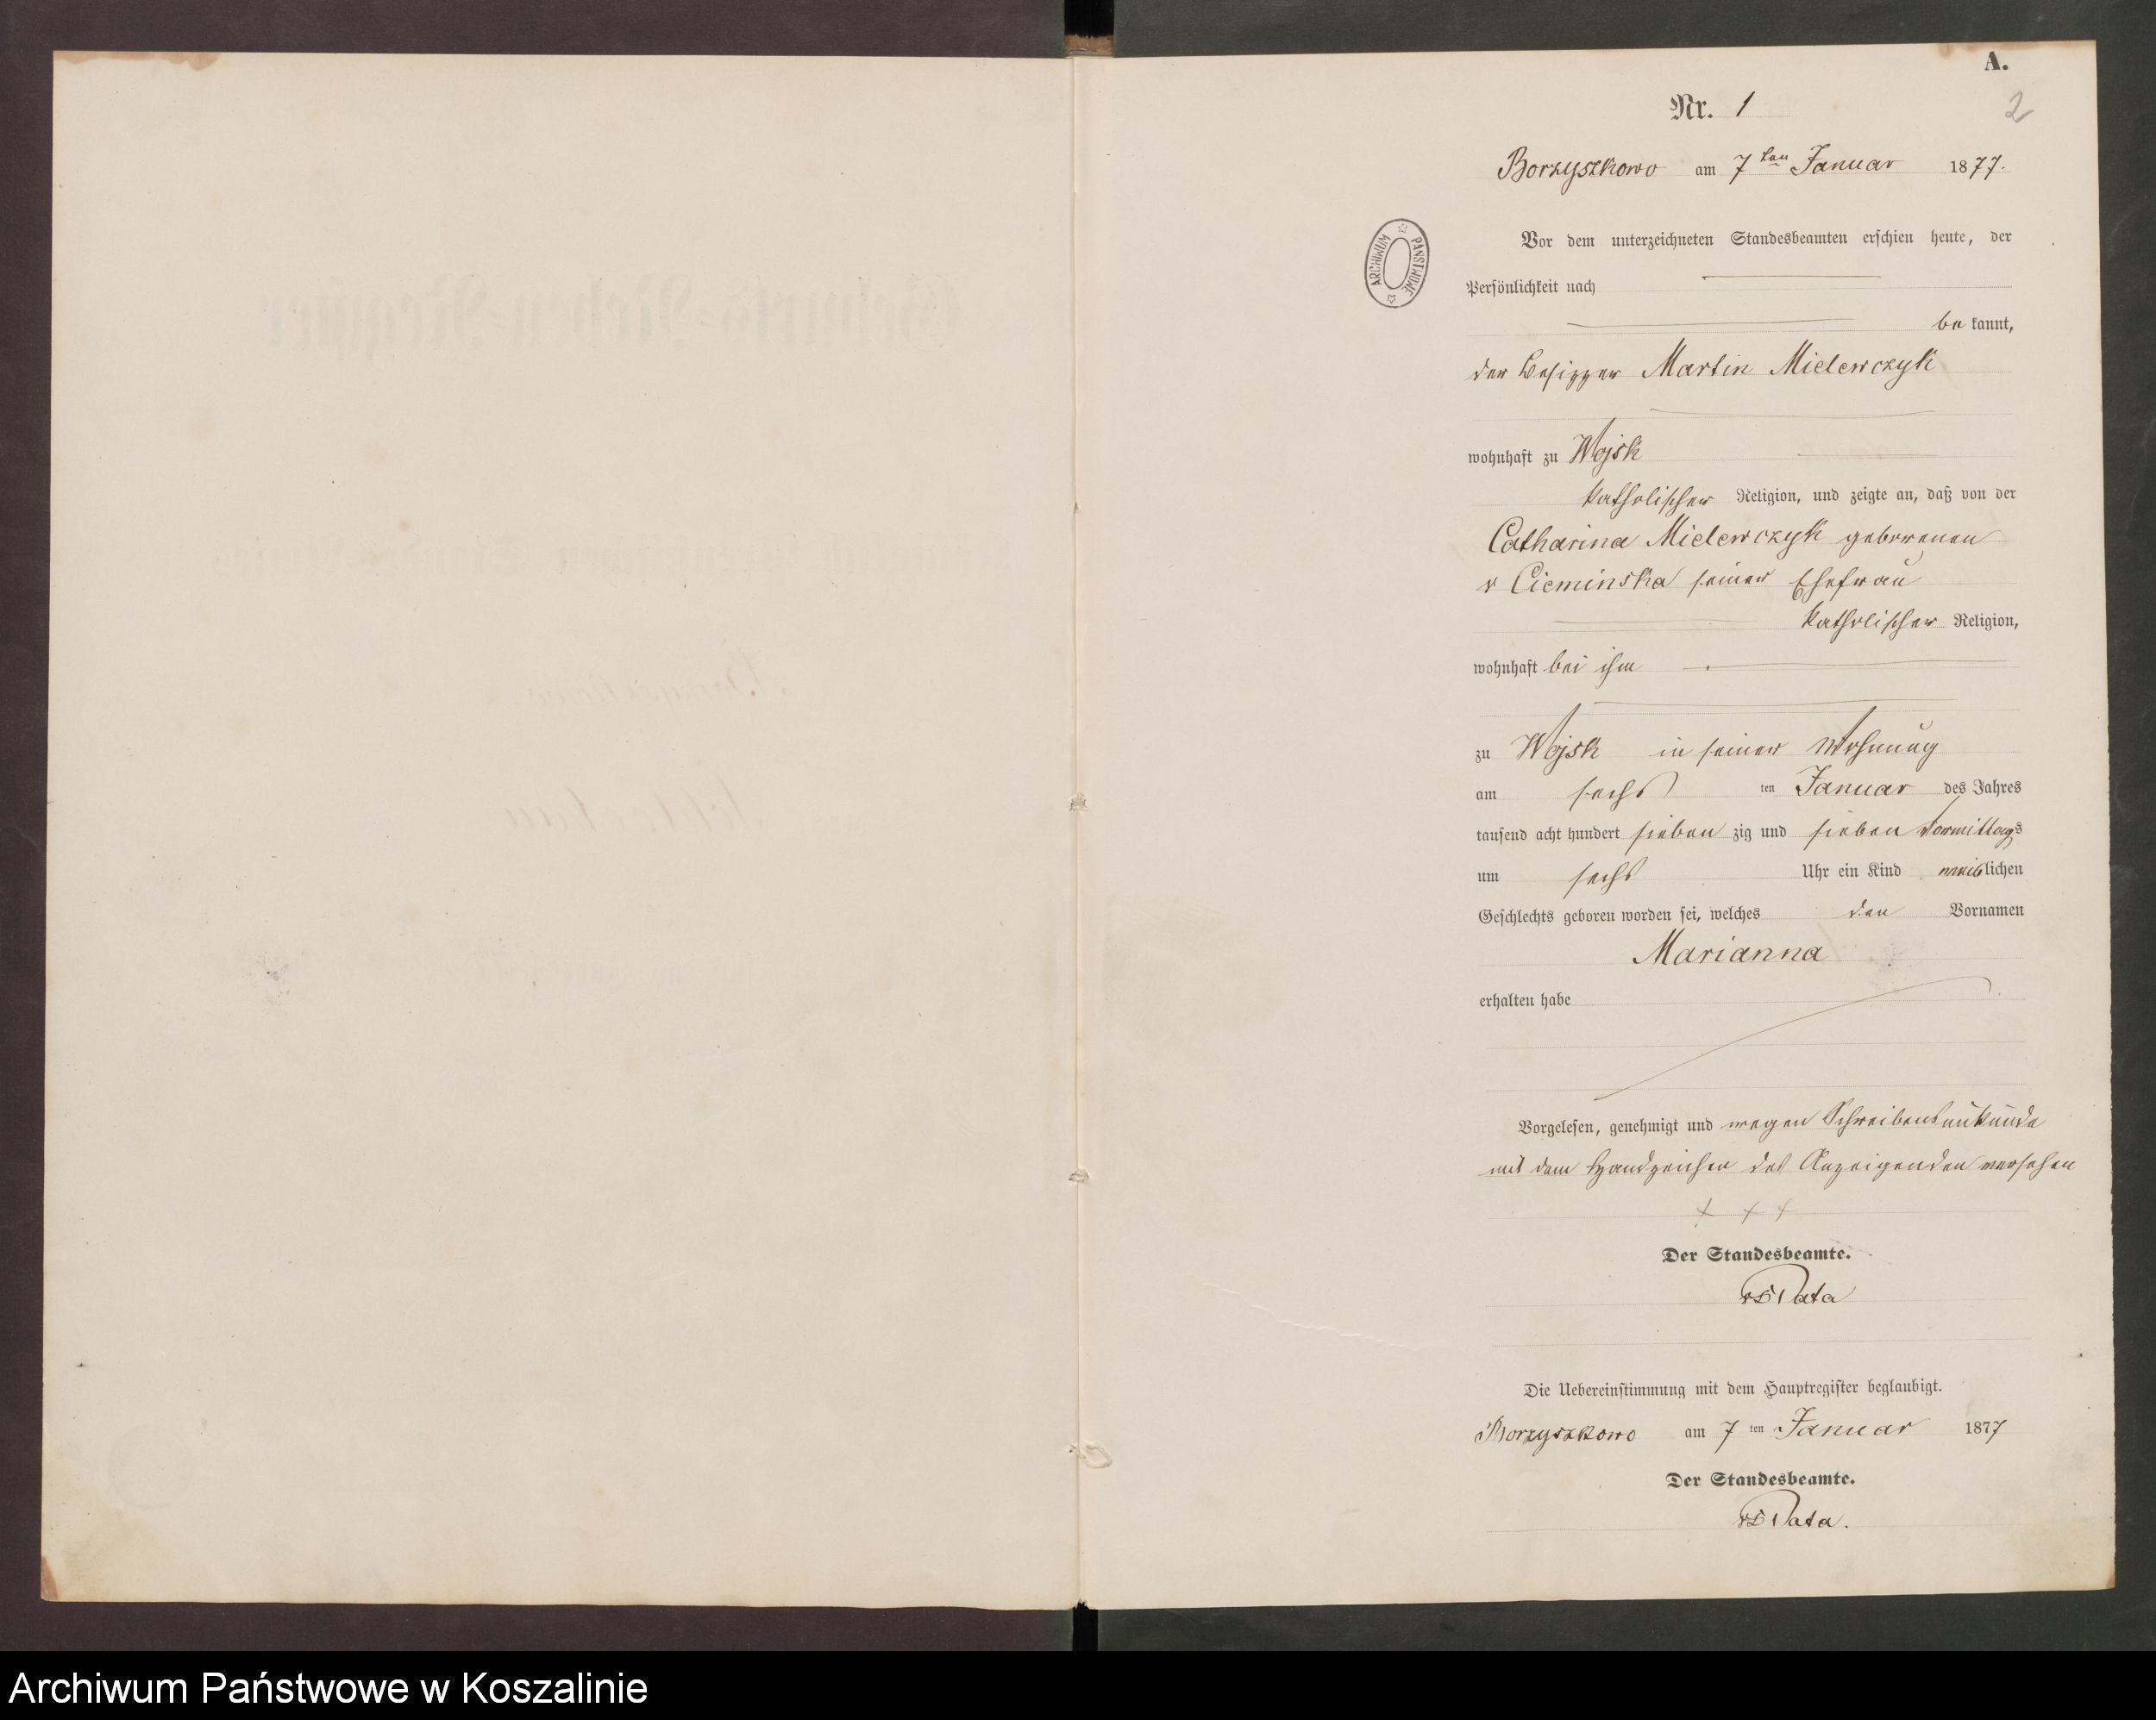 A.
Nr. 1
2
Borzyszkowo am 7ten Januar 1877.
Vor dem unterzeichneten Standesbeamten erschien heute, der
Persönlichkeit nach
be kannt,
der Besitzer Martin Mielewczyk
wohnhaft zu Wojsk
katholischer Religion, und zeigte an, daß von der
Catharina Mielewczyk geborenen
v Cieminska seiner Ehefrau
katholischer Religion,
wohnhaft bei ihm
zu Wojsk in seiner Wohnung
am sechs ten Januar des Jahres
tausend acht hundert sieben zig und sieben Vormittags
um sechs Uhr ein Kind weiblichen
Geschlechts geboren worden sei, welches den Vornamen
Marianna
erhalten habe
Vorgelesen, genehmigt und wegen Schreibensunkunde
mit dem Handzeichen des Anzeigenden versehen
+ + +
Der Standesbeamte.
Pata
Die Uebereinstimmung mit dem Hauptregister beglaubigt.
Borzyszkowo am 7 ten Januar 1877
Der Standesbeamte.
Pata.
ARCHIWUM PAŃSTWOWE
Archiwum Państwowe w Koszalinie